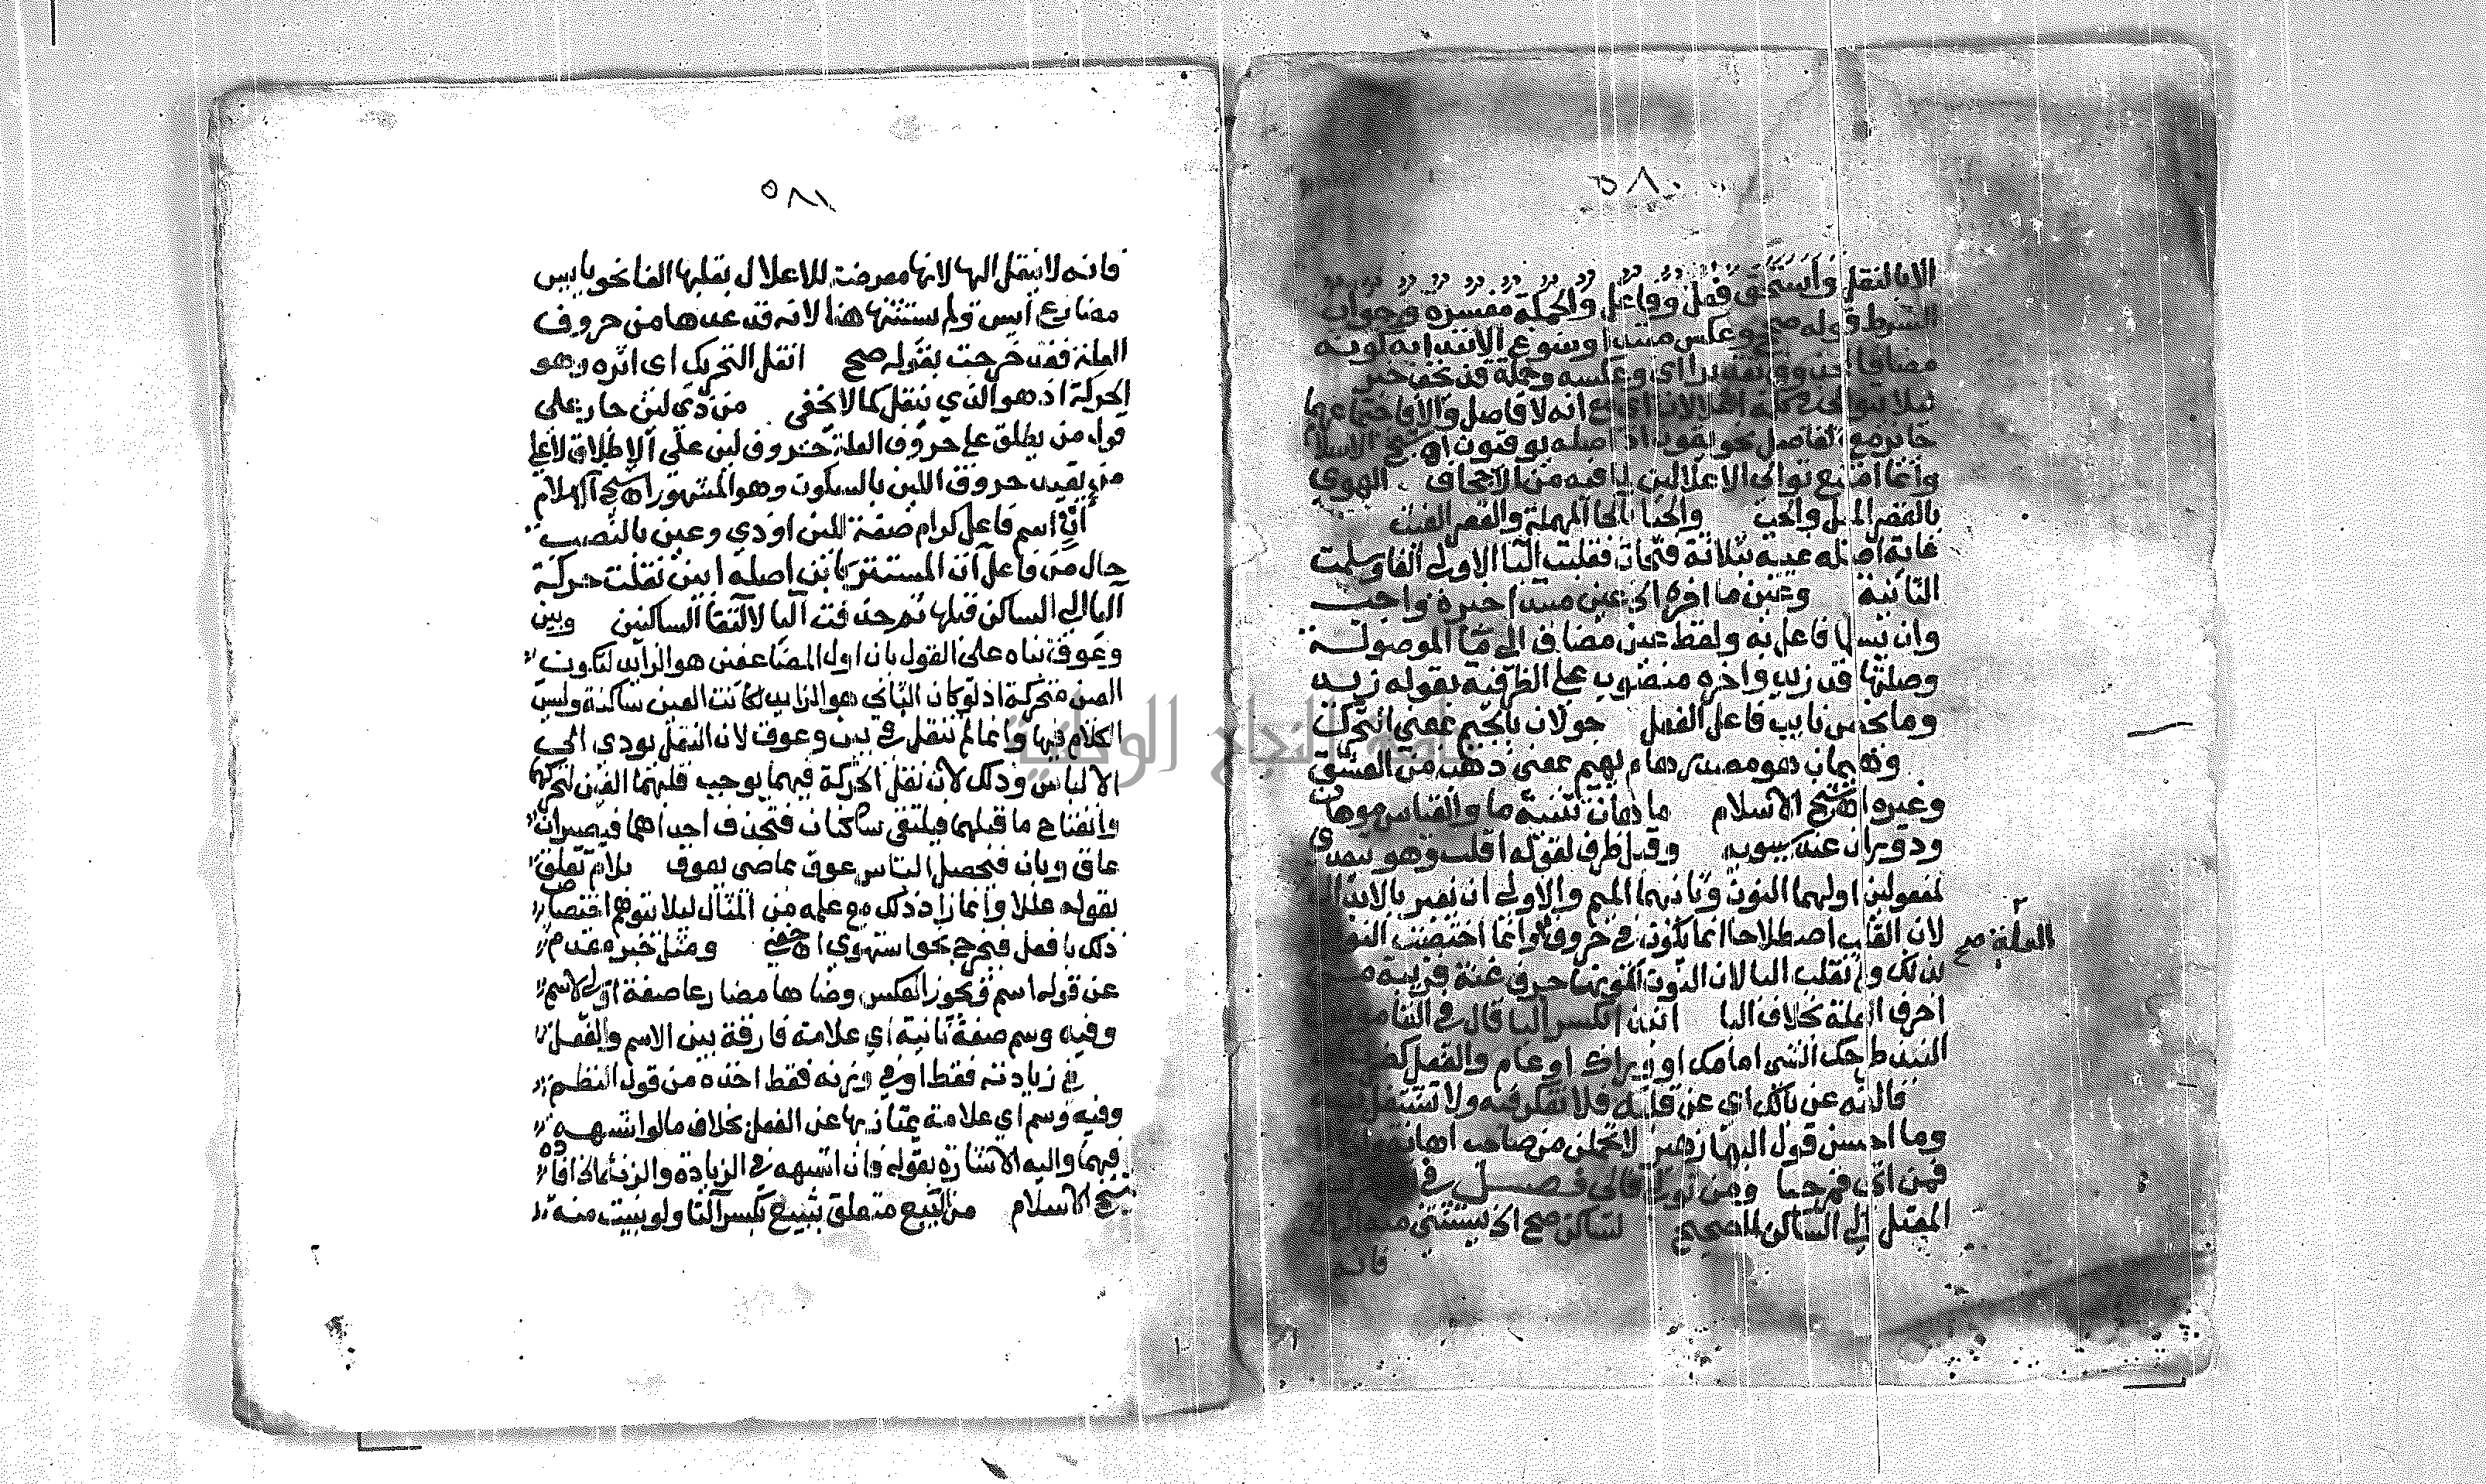 ٥٨٠
الا بالنقل واستحق فعل وفاعل والجملة مفسرة وجواب
الشرط قوله صح وعكس مبتدا وسوغ الابتدا به كونه
مضافا وعكسه وجملة قد يحق خبر
ليلا يتوالى اي مع انه لا فاصل والا فاجتماعهما
جايز مع الفاصل نحو اصله يوفيون اه شيخ الاسلام
وانما امتنع توالي الاعلالين لما فيه من الاجحاف الهوى
بالقصر الميل والحب والحيا بالحا المهملة والقصر الغيث
غاية اصله غيية بثلاثة فتحات فقلبت اليا الاولى الفا وسلمت
الثانية وعين ما اخره الخ عين مبتدا خبره واجب
وان يسلما فاعل به ولفظ عين مضاف الى ما الموصولة
وصلتها قد زيد واخره منصوب على الظرفية بقوله زيد
وما يخص نايب فاعل الفعل جولان بالجيم بمعنى التحرك
وهيمان هو مصدر هام يهيم بمعنى ذهب من العشق
وغيره اه شيخ الاسلام ماهان تثنية ما والقياس موهان
ودوران عند سيبويه وقبل ظرف لقوله اقلب وهو يتعدى
لمفعولين اولهما النون وثانيهما الميم والاولى ان يعبر بالابدال
لان القلب اصطلاحا انما يكون في حروف وانما اختصت النون
العلة صح
بذلك ولم تقلب اليا لان النون لكونها حرف غنة قريبة من
احرف العلة بخلاف اليا انبذ بكسر البا قال في القاموس
النبذ طرحك الشي امامك او وراك او عام والفعل كضرب
فالنبه عن بالك اي عن قلبك فلا تفكر فيه ولا تشتغل به
وما احسن قول البها زهير لا تحملن من صاحب اهانة
فمن اتى فمرحبا ومن تولى فالى فصل في
المعتل الى الساكن الصحيح لساكن صح الخ يستثنى
فانه
٥٨١
فانه لا ينقل اليها لانها معرضة للاعلال بقلبها الفا نحو يايس
مضارع ايس ولم يستثنها هنا لانه قد عدها من حروف
العلة فقد خرجت بقوله صح انقل التحريك اي اثره وهو
الحركة اذ هو الذي ينقل كما لا يخفى من ذي لين جار على
قول من يطلق على حروف العلة حروف لين على الاطلاق لا على
من يقيد حروف اللين بالسكون وهو المشهور اه شيخ الاسلام
آت اسم فاعل كرام صفة للين او ذي وعين بالنصب
حال من فاعل آت المستتر كابن اصله ابين نقلت حركة
اليا الى الساكن قبلها ثم حذفت اليا لالتقا الساكنين وبين
وعوق بناه على القول بان اول المضاعفين هو الزايد لتكون
العين متحركة اذ لو كان الثاني هو الزايد لكانت العين ساكنة وليس
الكلام فيها وانما لم ينقل في بين وعوق لان النقل يودي الى
الالباس وذلك لان نقل الحركة فيهما يوجب قلبهما الفين لتحركهما
وانفتاح ما قبلهما فيلتقي ساكنان فتحذف احداهما فيصيران
عاق وبان فيحصل التباس عوق بماضي يعوق بلام تعلق
بقوله عللا وانما زاد ذلك مع علمه من المثال ليلا يتوهم اختصاص
ذلك بافعل فتخرج نحو استهوى اه ومثل خبر مقدم
عن قوله اسم ويجوز العكس وضاها مضارعا صفة اولى لاسم
وفيه وسم صفة ثانية اي علامة فارقة بين الاسم والفعل
في زيادته فقط او في وزنه فقط اخذه من قول النظم
وفيه وسم اي علامة يمتاز بها عن الفعل بخلاف ما لو اشبهه
فيهما واليه الاشارة بقوله فان اشبهه في الزيادة والزنة
شيخ الاسلام من البيع متعلق بتبيع بكسر التا ولو بنيت منه